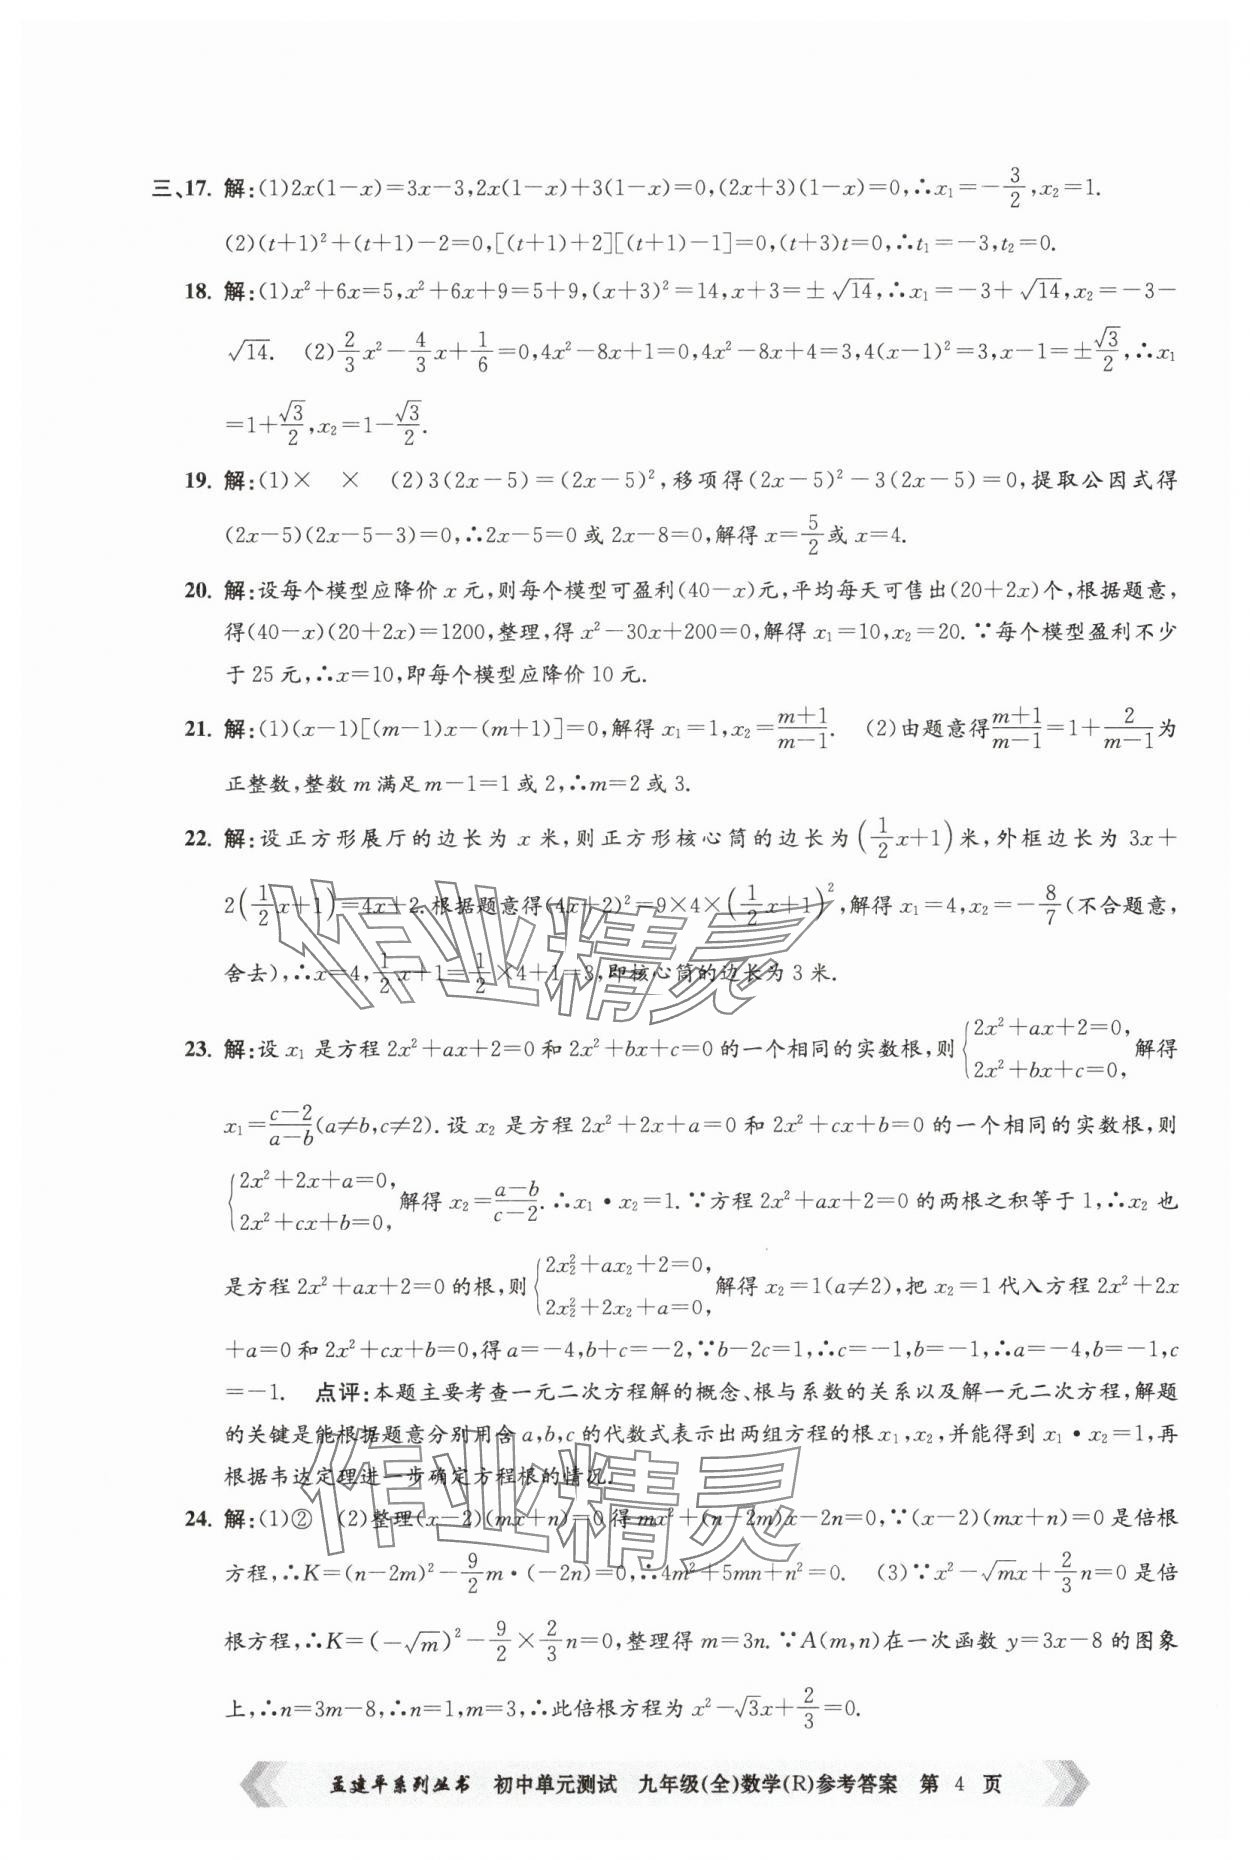 三、17. 解:(1)2x(1-x)=3x-3,2x(1-x)+3(1-x)=0,(2x+3)(1-x)=0,∴x₁=-3/2,x₂=1.
(2)(t+1)²+(t+1)-2=0,[(t+1)+2][(t+1)-1]=0,(t+3)t=0,∴t₁=-3,t₂=0.
18. 解:(1)x²+6x=5,x²+6x+9=5+9,(x+3)²=14,x+3=±√14,∴x₁=-3+√14,x₂=-3-
√14. (2)2/3x²-4/3x+1/6=0,4x²-8x+1=0,4x²-8x+4=3,4(x-1)²=3,x-1=±√3/2,∴x₁
=1+√3/2,x₂=1-√3/2.
19. 解:(1)× × (2)3(2x-5)=(2x-5)²,移项得(2x-5)²-3(2x-5)=0,提取公因式得
(2x-5)(2x-5-3)=0,∴2x-5=0或2x-8=0,解得x=5/2或x=4.
20. 解:设每个模型应降价x元,则每个模型可盈利(40-x)元,平均每天可售出(20+2x)个,根据题意,
得(40-x)(20+2x)=1200,整理,得x²-30x+200=0,解得x₁=10,x₂=20.∵每个模型盈利不少
于25元,∴x=10,即每个模型应降价10元.
21. 解:(1)(x-1)[(m-1)x-(m+1)]=0,解得x₁=1,x₂=(m+1)/(m-1). (2)由题意得(m+1)/(m-1)=1+2/(m-1)为
正整数,整数m满足m-1=1或2,∴m=2或3.
22. 解:设正方形展厅的边长为x米,则正方形核心筒的边长为(1/2x+1)米,外框边长为3x+
2(1/2x+1)=4x+2.根据题意得(4x+2)²=9×4×(1/2x+1)²,解得x₁=4,x₂=-8/7(不合题意,
舍去),∴x=4,1/2x+1=1/2×4+1=3,即核心筒的边长为3米.
23. 解:设x₁是方程2x²+ax+2=0和2x²+bx+c=0的一个相同的实数根,则{2x²+ax+2=0, 2x²+bx+c=0,解得
x₁=(c-2)/(a-b)(a≠b,c≠2).设x₂是方程2x²+2x+a=0和2x²+cx+b=0的一个相同的实数根,则
{2x²+2x+a=0, 2x²+cx+b=0,解得x₂=(a-b)/(c-2).∴x₁•x₂=1.∵方程2x²+ax+2=0的两根之积等于1,∴x₂也
是方程2x²+ax+2=0的根,则{2x₂²+ax₂+2=0, 2x₂²+2x₂+a=0,解得x₂=1(a≠2),把x₂=1代入方程2x²+2x
+a=0和2x²+cx+b=0,得a=-4,b+c=-2,∵b-2c=1,∴c=-1,b=-1,∴a=-4,b=-1,c
=-1. 点评:本题主要考查一元二次方程解的概念、根与系数的关系以及解一元二次方程,解题
的关键是能根据题意分别用含a,b,c的代数式表示出两组方程的根x₁,x₂,并能得到x₁•x₂=1,再
根据韦达定理进一步确定方程根的情况.
24. 解:(1)② (2)整理(x-2)(mx+n)=0得mx²+(n-2m)x-2n=0,∵(x-2)(mx+n)=0是倍根
方程,∴K=(n-2m)²-9/2m·(-2n)=0,∴4m²+5mn+n²=0. (3)∵x²-√mx+2/3n=0是倍
根方程,∴K=(-√m)²-9/2×2/3n=0,整理得m=3n.∵A(m,n)在一次函数y=3x-8的图象
上,∴n=3m-8,∴n=1,m=3,∴此倍根方程为x²-√3x+2/3=0.
孟建平系列丛书 初中单元测试 九年级(全)数学(R)参考答案 第4页
作业精灵
作业精灵